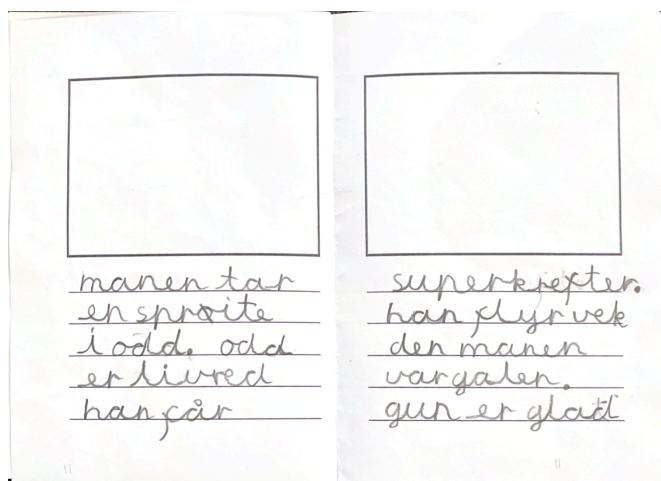 manen tar
en sprøite
i odd. odd
er livred
han får
superkrefter.
han flyr vek
den manen
var galen.
gun er glad